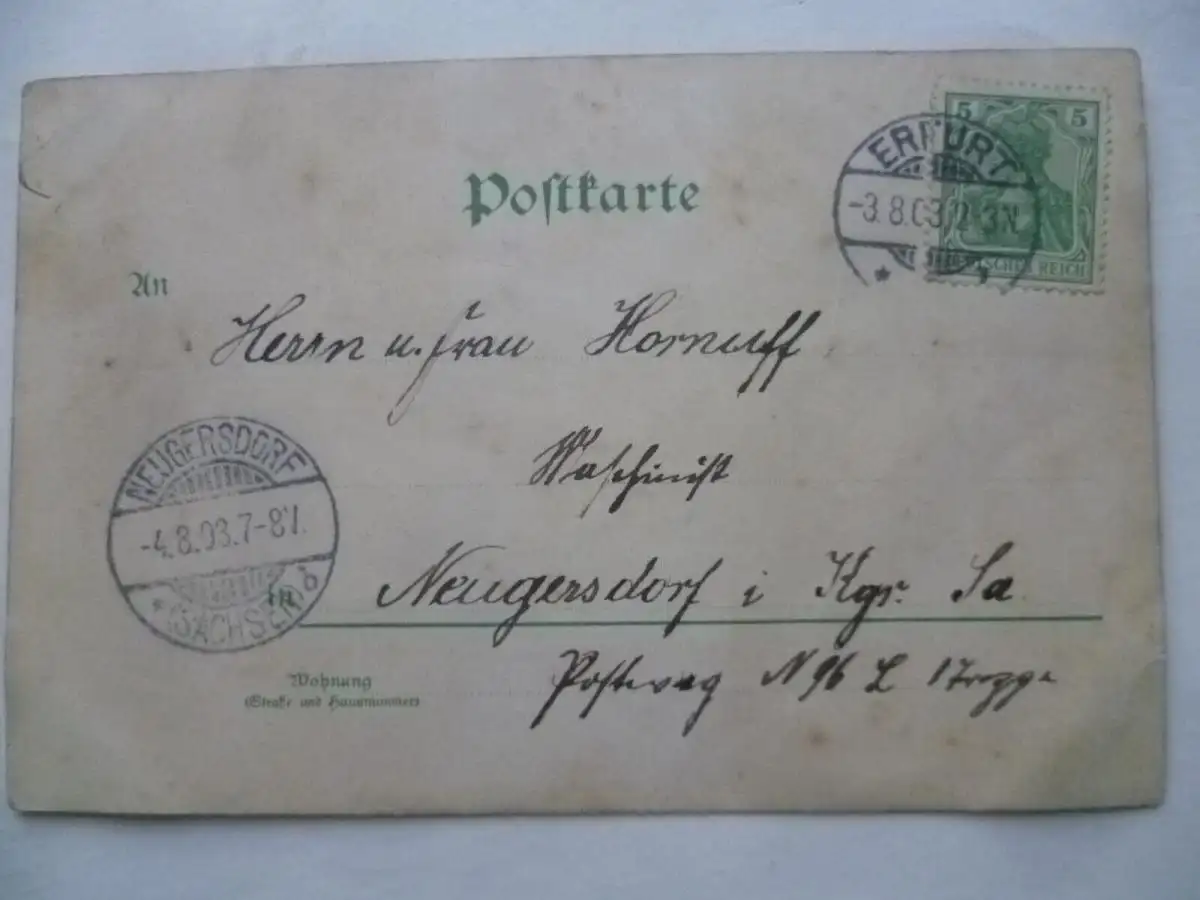 Postkarte
5 5
DEUTSCHES REICH
ERFURT
-3.8.03. 2-3N.
An
Herrn u. Frau Hornuff
Maschinist
NEUGERSDORF
-4.8.03.7-8V.
(SACHSEN) b
in Neugersdorf i Kgr. Sa
Postweg N 96 L 1 Treppe
Wohnung
(Straße und Hausnummer)